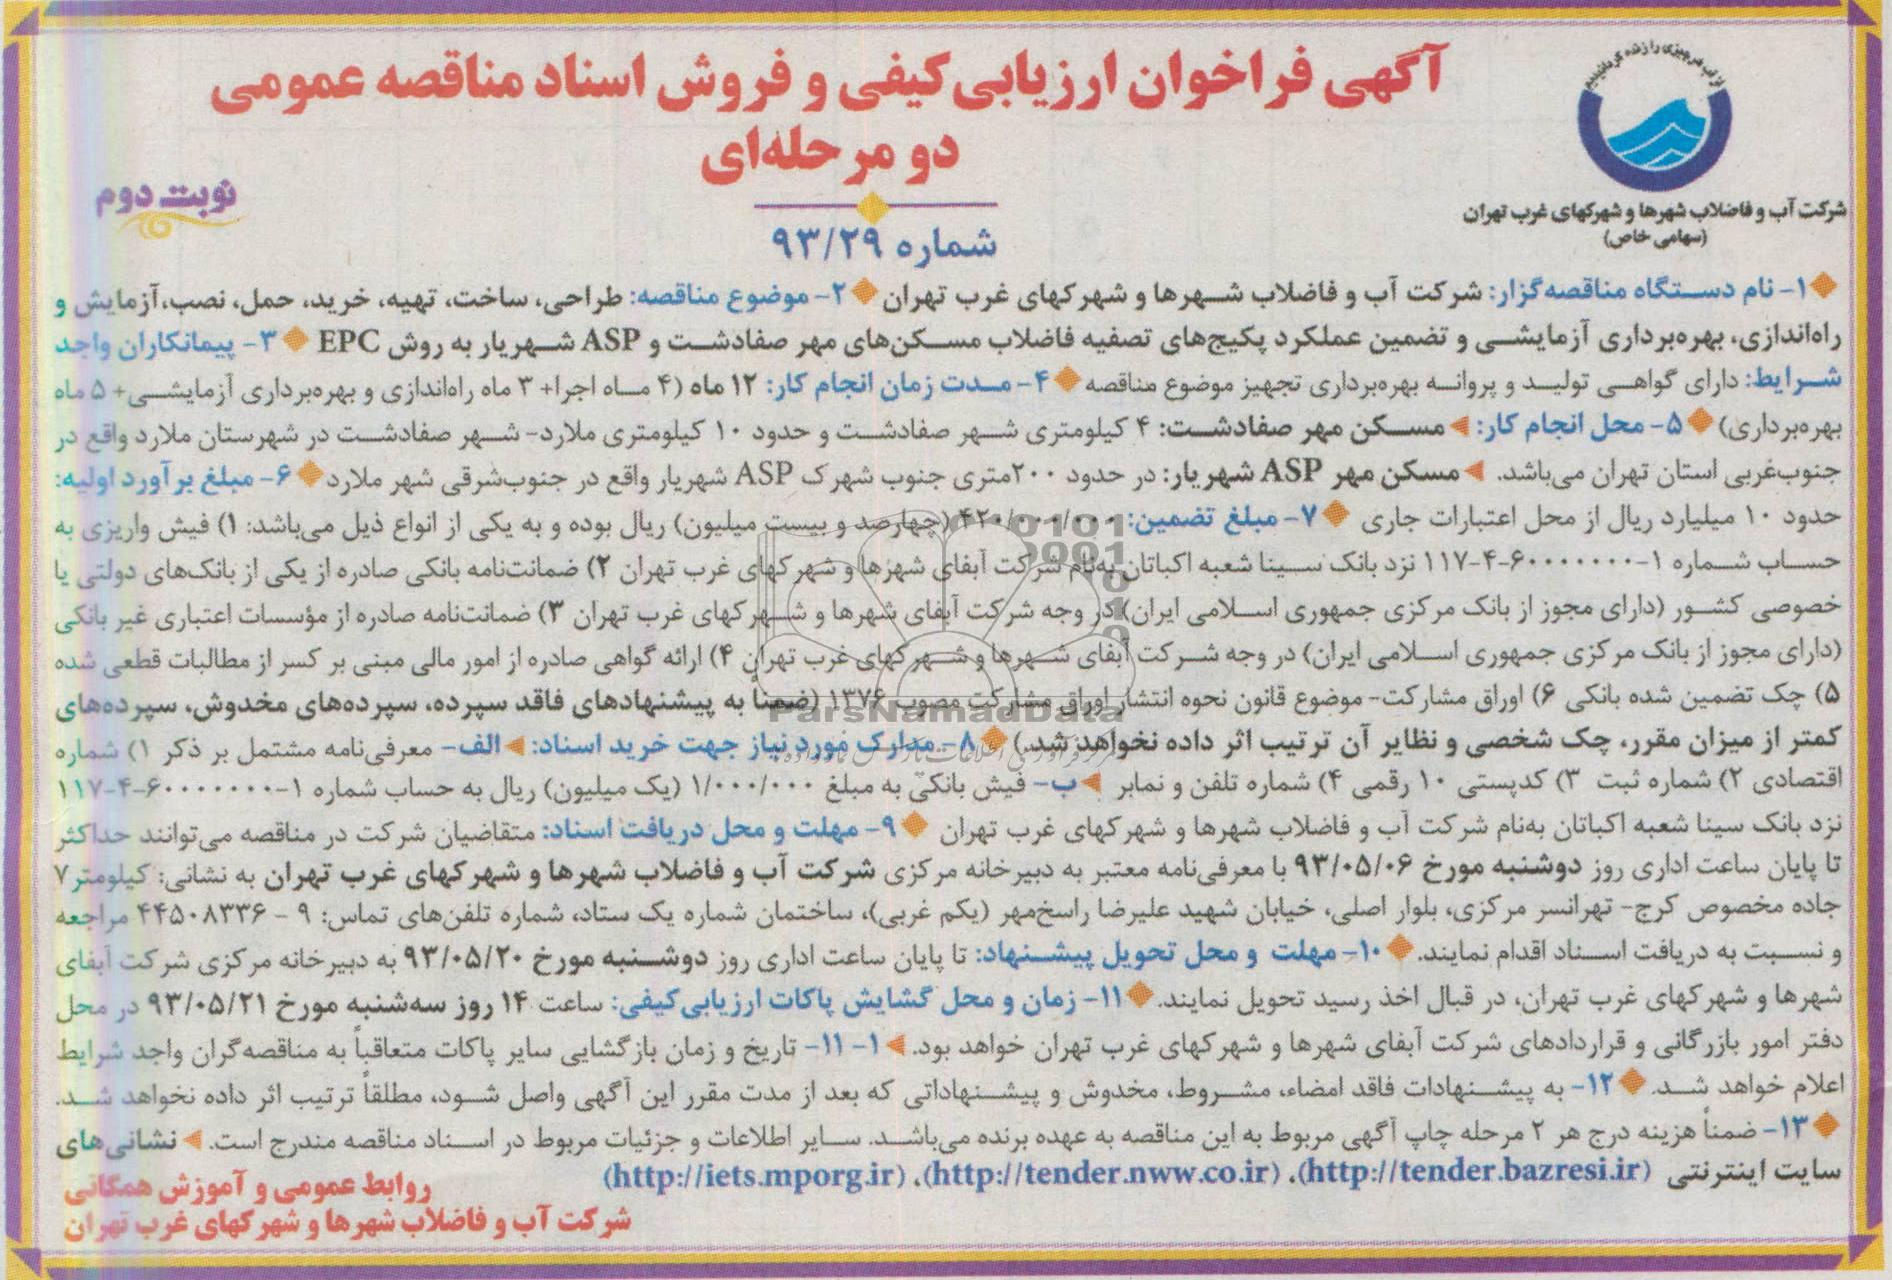 از آب هر چیزی را زنده گردانیدیم
شرکت آب و فاضلاب شهرها و شهرکهای غرب تهران
(سهامی خاص)
آگهی فراخوان ارزیابی کیفی و فروش اسناد مناقصه عمومی
دو مرحله‌ای
نوبت دوم
شماره ۹۳/۲۹
۱- نام دستگاه مناقصه‌گزار: شرکت آب و فاضلاب شهرها و شهرکهای غرب تهران ۲- موضوع مناقصه: طراحی، ساخت، تهیه، خرید، حمل، نصب، آزمایش و
راه‌اندازی، بهره‌برداری آزمایشی و تضمین عملکرد پکیج‌های تصفیه فاضلاب مسکن‌های مهر صفادشت و ASP شهریار به روش EPC ۳- پیمانکاران واجد
شرایط: دارای گواهی تولید و پروانه بهره‌برداری تجهیز موضوع مناقصه ۴- مدت زمان انجام کار: ۱۲ ماه (۴ ماه اجرا+ ۳ ماه راه‌اندازی و بهره‌برداری آزمایشی+ ۵ ماه
بهره‌برداری) ۵- محل انجام کار: مسکن مهر صفادشت: ۴ کیلومتری شهر صفادشت و حدود ۱۰ کیلومتری ملارد- شهر صفادشت در شهرستان ملارد واقع در
جنوب‌غربی استان تهران می‌باشد. مسکن مهر ASP شهریار: در حدود ۲۰۰متری جنوب شهرک ASP شهریار واقع در جنوب‌شرقی شهر ملارد ۶- مبلغ برآورد اولیه:
حدود ۱۰ میلیارد ریال از محل اعتبارات جاری ۷- مبلغ تضمین: ۴۲۰/۰۰۰/۰۰۰ (چهارصد و بیست میلیون) ریال بوده و به یکی از انواع ذیل می‌باشد: ۱) فیش واریزی به
حساب شماره ۱-۶۰۰۰۰۰۰۰-۴-۱۱۷ نزد بانک سینا شعبه اکباتان به‌نام شرکت آبفای شهرها و شهرکهای غرب تهران ۲) ضمانت‌نامه بانکی صادره از یکی از بانک‌های دولتی یا
خصوصی کشور (دارای مجوز از بانک مرکزی جمهوری اسلامی ایران) در وجه شرکت آبفای شهرها و شهرکهای غرب تهران ۳) ضمانت‌نامه صادره از مؤسسات اعتباری غیر بانکی
(دارای مجوز از بانک مرکزی جمهوری اسلامی ایران) در وجه شرکت آبفای شهرها و شهرکهای غرب تهران ۴) ارائه گواهی صادره از امور مالی مبنی بر کسر از مطالبات قطعی شده
۵) چک تضمین شده بانکی ۶) اوراق مشارکت- موضوع قانون نحوه انتشار اوراق مشارکت مصوب ۱۳۷۶ (ضمناً به پیشنهادهای فاقد سپرده، سپرده‌های مخدوش، سپرده‌های
کمتر از میزان مقرر، چک شخصی و نظایر آن ترتیب اثر داده نخواهد شد.) ۸- مدارک مورد نیاز جهت خرید اسناد: الف- معرفی‌نامه مشتمل بر ذکر ۱) شماره
اقتصادی ۲) شماره ثبت ۳) کدپستی ۱۰ رقمی ۴) شماره تلفن و نمابر ب- فیش بانکی به مبلغ ۱/۰۰۰/۰۰۰ (یک میلیون) ریال به حساب شماره ۱-۶۰۰۰۰۰۰۰-۴-۱۱۷
نزد بانک سینا شعبه اکباتان به‌نام شرکت آب و فاضلاب شهرها و شهرکهای غرب تهران ۹- مهلت و محل دریافت اسناد: متقاضیان شرکت در مناقصه می‌توانند حداکثر
تا پایان ساعت اداری روز دوشنبه مورخ ۹۳/۰۵/۰۶ با معرفی‌نامه معتبر به دبیرخانه مرکزی شرکت آب و فاضلاب شهرها و شهرکهای غرب تهران به نشانی: کیلومتر۷
جاده مخصوص کرج- تهرانسر مرکزی، بلوار اصلی، خیابان شهید علیرضا راسخ‌مهر (یکم غربی)، ساختمان شماره یک ستاد، شماره تلفن‌های تماس: ۹ - ۴۴۵۰۸۳۳۶ مراجعه
و نسبت به دریافت اسناد اقدام نمایند. ۱۰- مهلت و محل تحویل پیشنهاد: تا پایان ساعت اداری روز دوشنبه مورخ ۹۳/۰۵/۲۰ به دبیرخانه مرکزی شرکت آبفای
شهرها و شهرکهای غرب تهران، در قبال اخذ رسید تحویل نمایند. ۱۱- زمان و محل گشایش پاکات ارزیابی‌کیفی: ساعت ۱۴ روز سه‌شنبه مورخ ۹۳/۰۵/۲۱ در محل
دفتر امور بازرگانی و قراردادهای شرکت آبفای شهرها و شهرکهای غرب تهران خواهد بود. ۱- ۱۱- تاریخ و زمان بازگشایی سایر پاکات متعاقباً به مناقصه‌گران واجد شرایط
اعلام خواهد شد. ۱۲- به پیشنهادات فاقد امضاء، مشروط، مخدوش و پیشنهاداتی که بعد از مدت مقرر این آگهی واصل شود، مطلقاً ترتیب اثر داده نخواهد شد.
۱۳- ضمناً هزینه درج هر ۲ مرحله چاپ آگهی مربوط به این مناقصه به عهده برنده می‌باشد. سایر اطلاعات و جزئیات مربوط در اسناد مناقصه مندرج است. نشانی‌های
سایت اینترنتی (http://tender.bazresi.ir)، (http://tender.nww.co.ir)، (http://iets.mporg.ir)
روابط عمومی و آموزش همگانی
شرکت آب و فاضلاب شهرها و شهرکهای غرب تهران
ParsNamadData